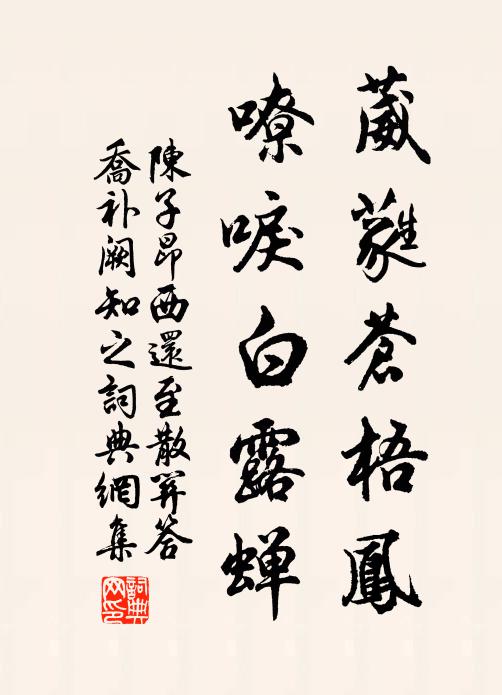 葳蕤蒼梧鳳
嘹唳白露蝉
陳子昂西還至散関答
喬补阙知之詞典網集
詞典网印